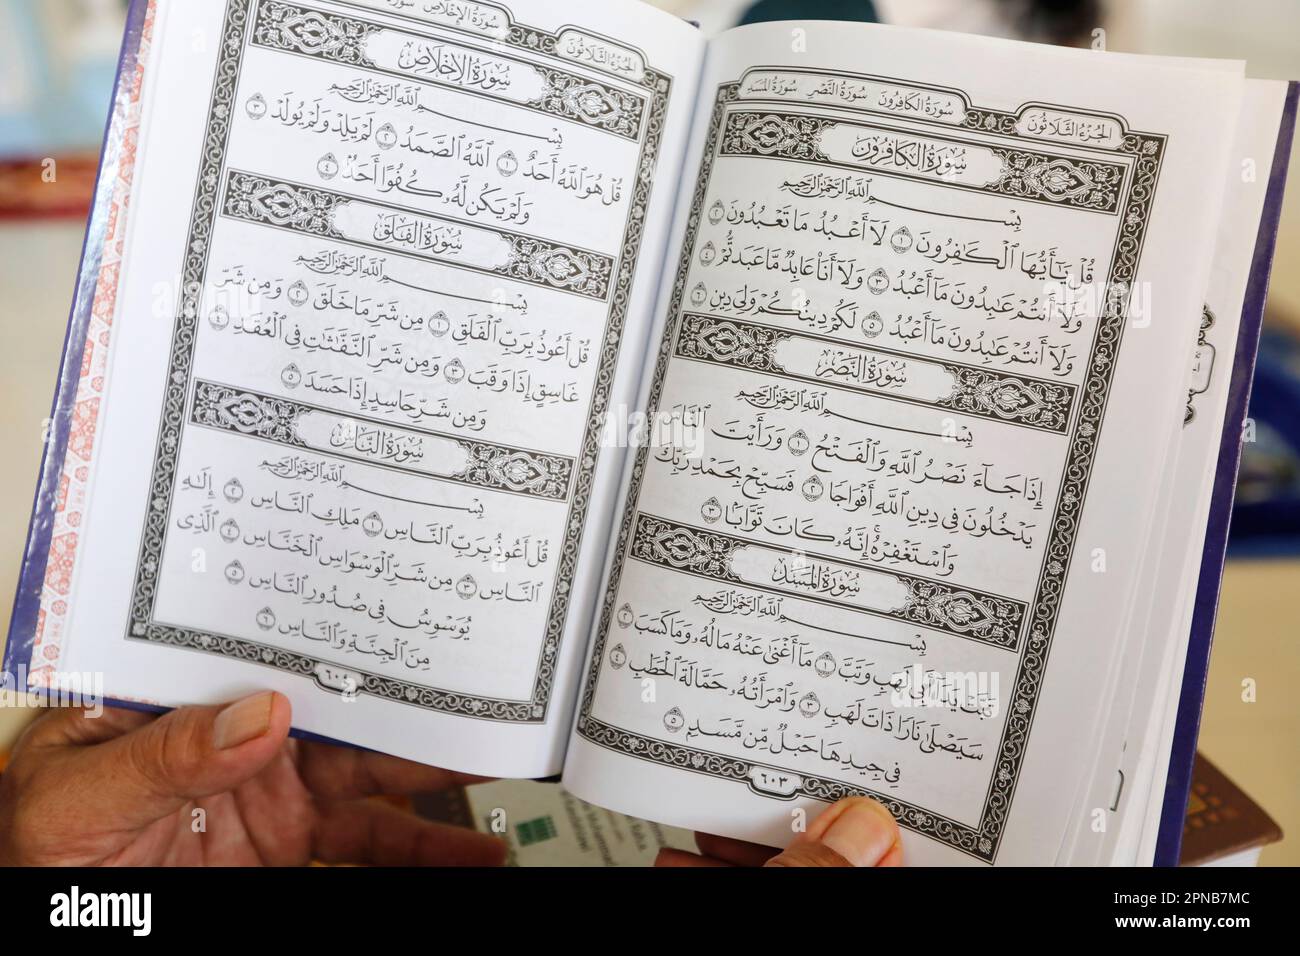 الجُزْءُ الثَّلَاثُونَ
سُورَةُ الكَافِرُونَ سُورَةُ النَّصْرِ سُورَةُ المَسَدِ
سُورَةُ الكَافِرُونَ
بِسْمِ اللَّهِ الرَّحْمَٰنِ الرَّحِيمِ
قُلْ يَٰٓأَيُّهَا ٱلْكَٰفِرُونَ ١ لَآ أَعْبُدُ مَا تَعْبُدُونَ ٢
وَلَآ أَنتُمْ عَٰبِدُونَ مَآ أَعْبُدُ ٣ وَلَآ أَنَا۠ عَابِدٌ مَّا عَبَدتُّمْ ٤
وَلَآ أَنتُمْ عَٰبِدُونَ مَآ أَعْبُدُ ٥ لَكُمْ دِينُكُمْ وَلِيَ دِينِ ٦
سُورَةُ النَّصْرِ
بِسْمِ اللَّهِ الرَّحْمَٰنِ الرَّحِيمِ
إِذَا جَآءَ نَصْرُ ٱللَّهِ وَٱلْفَتْحُ ١ وَرَأَيْتَ ٱلنَّاسَ
يَدْخُلُونَ فِى دِينِ ٱللَّهِ أَفْوَاجًا ٢ فَسَبِّحْ بِحَمْدِ رَبِّكَ
وَٱسْتَغْفِرْهُ ۚ إِنَّهُۥ كَانَ تَوَّابًۢا ٣
سُورَةُ المَسَدِ
بِسْمِ اللَّهِ الرَّحْمَٰنِ الرَّحِيمِ
تَبَّتْ يَدَآ أَبِى لَهَبٍ وَتَبَّ ١ مَآ أَغْنَىٰ عَنْهُ مَالُهُۥ وَمَا كَسَبَ ٢
سَيَصْلَىٰ نَارًا ذَاتَ لَهَبٍ ٣ وَٱمْرَأَتُهُۥ حَمَّالَةَ ٱلْحَطَبِ ٤
فِى جِيدِهَا حَبْلٌ مِّن مَّسَدٍۭ ٥
٦٠٣
الجُزْءُ الثَّلَاثُونَ
سُورَةُ الإِخْلَاصِ
سُورَةُ الإِخْلَاصِ
بِسْمِ اللَّهِ الرَّحْمَٰنِ الرَّحِيمِ
قُلْ هُوَ ٱللَّهُ أَحَدٌ ١ ٱللَّهُ ٱلصَّمَدُ ٢ لَمْ يَلِدْ وَلَمْ يُولَدْ ٣
وَلَمْ يَكُن لَّهُۥ كُفُوًا أَحَدٌۢ ٤
سُورَةُ الفَلَقِ
بِسْمِ اللَّهِ الرَّحْمَٰنِ الرَّحِيمِ
قُلْ أَعُوذُ بِرَبِّ ٱلْفَلَقِ ١ مِن شَرِّ مَا خَلَقَ ٢ وَمِن شَرِّ
غَاسِقٍ إِذَا وَقَبَ ٣ وَمِن شَرِّ ٱلنَّفَّٰثَٰتِ فِى ٱلْعُقَدِ ٤
وَمِن شَرِّ حَاسِدٍ إِذَا حَسَدَ ٥
سُورَةُ النَّاسِ
بِسْمِ اللَّهِ الرَّحْمَٰنِ الرَّحِيمِ
قُلْ أَعُوذُ بِرَبِّ ٱلنَّاسِ ١ مَلِكِ ٱلنَّاسِ ٢ إِلَٰهِ
ٱلنَّاسِ ٣ مِن شَرِّ ٱلْوَسْوَاسِ ٱلْخَنَّاسِ ٤ ٱلَّذِى
يُوَسْوِسُ فِى صُدُورِ ٱلنَّاسِ ٥
مِنَ ٱلْجِنَّةِ وَٱلنَّاسِ ٦
٦٠٤
alamy
Image ID: 2PNB7MC
www.alamy.com